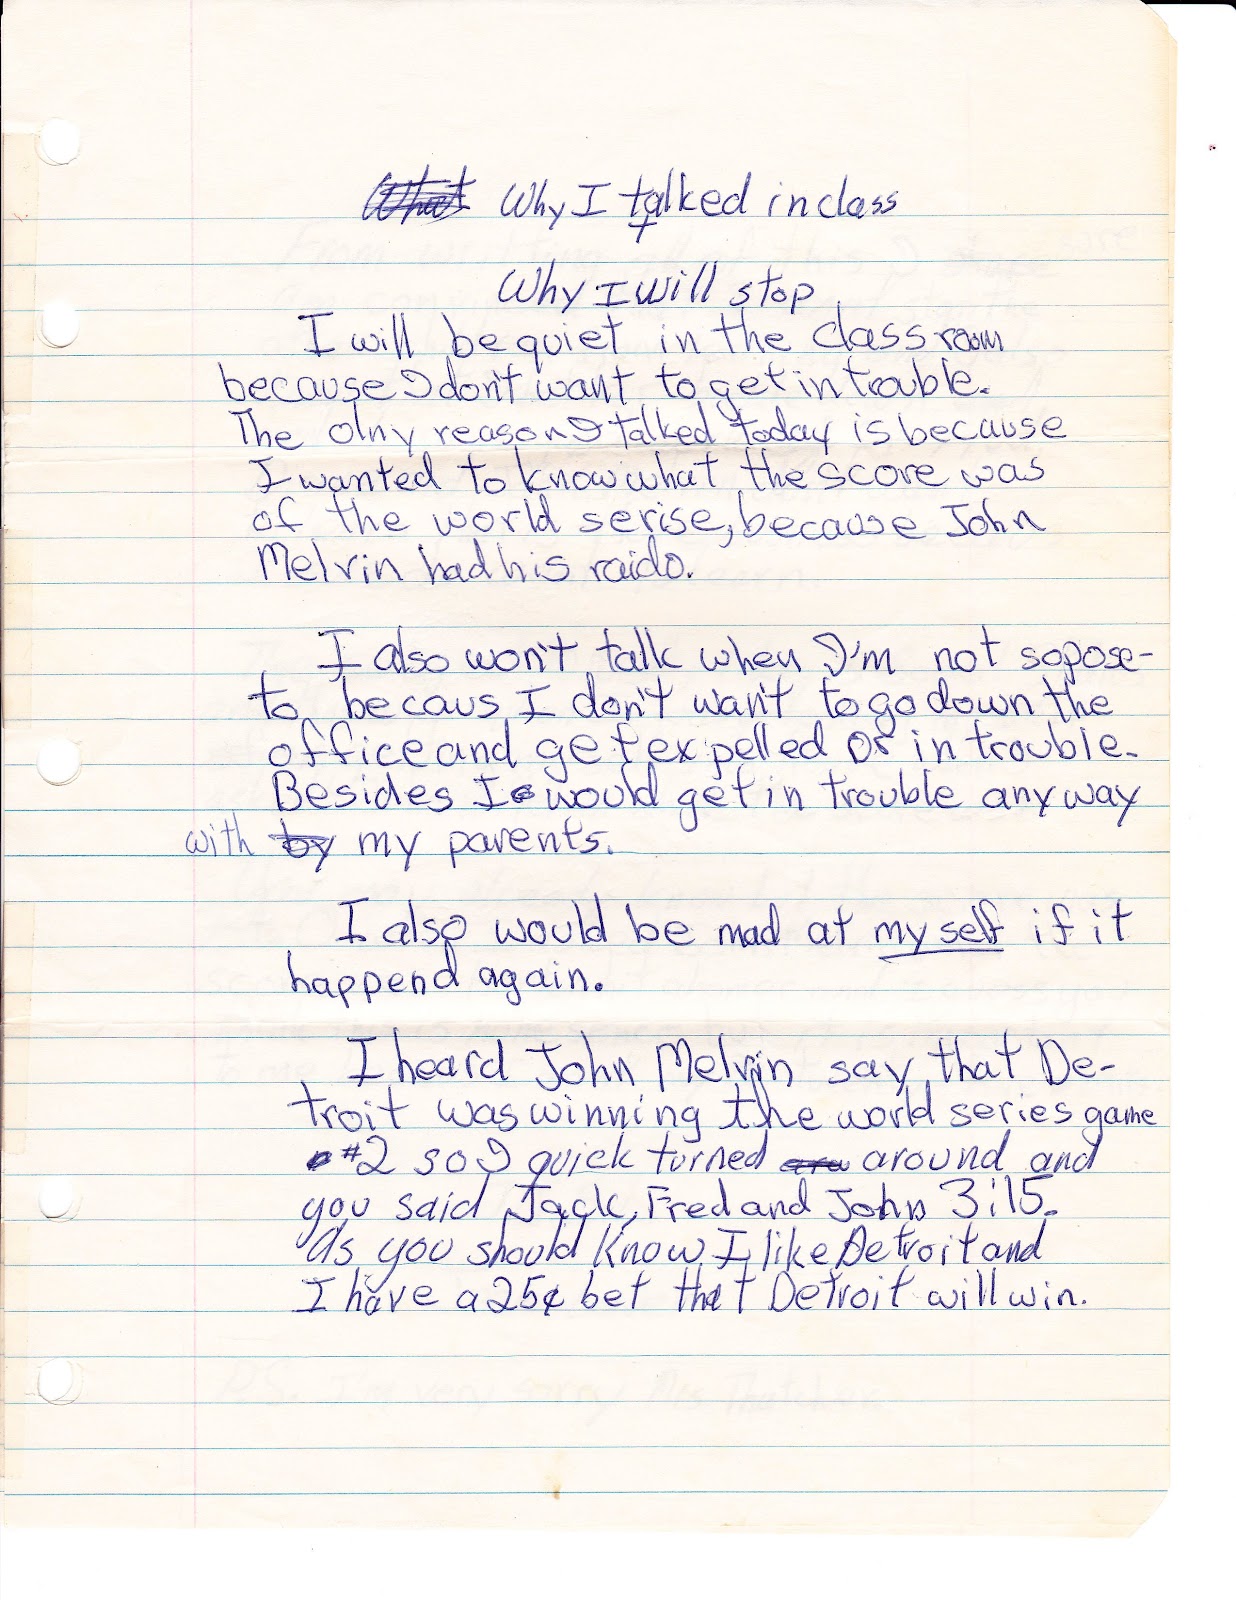 Why I talked in class
+
Why I will stop
I will be quiet in the classroom
because I don't want to get in trouble.
The olny reason I talked today is because
I wanted to know what the score was
of the world serise, because John
Melvin had his raido.
I also won't talk when I'm not sopose-
to becaus I don't wan't to go down the
office and get expelled or in trouble.
Besides I would get in trouble any way
with by my parents.
I also would be mad at my self if it
happend again.
I heard John Melvin say that De-
troit was winning the world series game
#2 so I quick turned around and
you said Jack, Fred and John 3:15.
As you should know I like Detroit and
I have a 25¢ bet that Detroit will win.
P.S. I'm very sorry Mrs. Thatcher